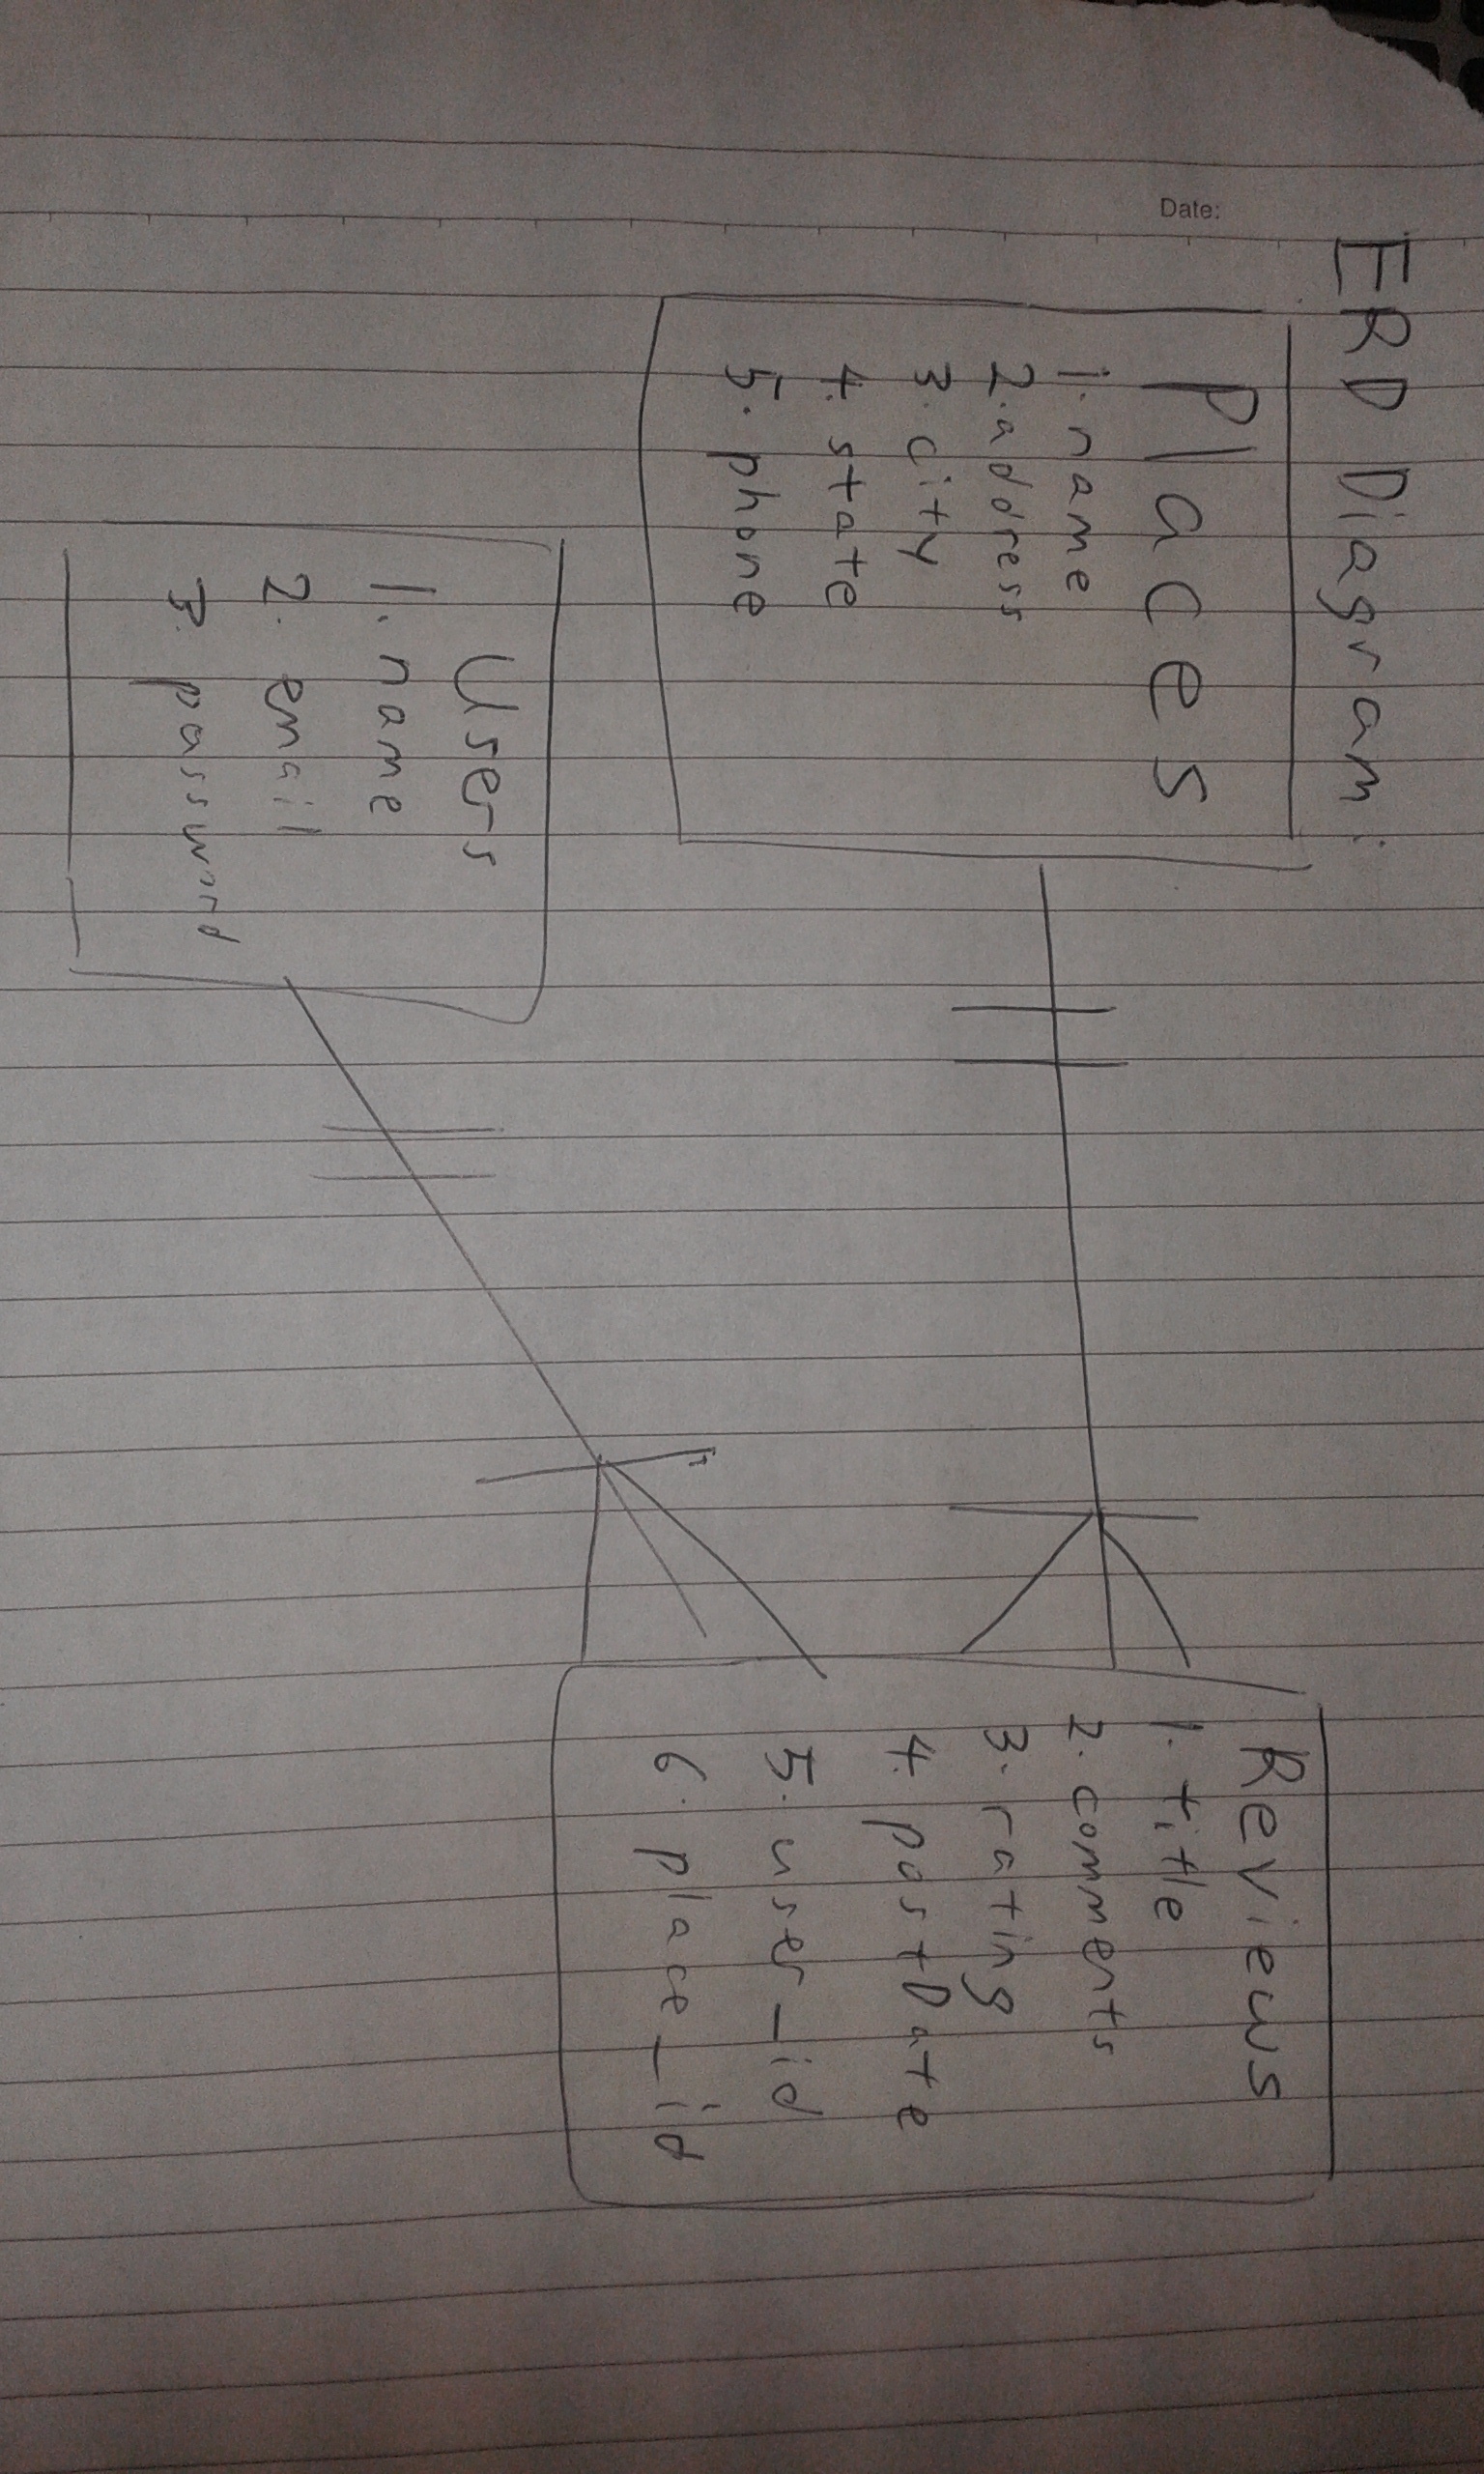 Date:
ERD Diagram:
Places
1. name
2. address
3. city
4. state
5. phone
Users
1. name
2. email
3. password
Reviews
1. title
2. comments
3. rating
4. postDate
5. user_id
6. place_id